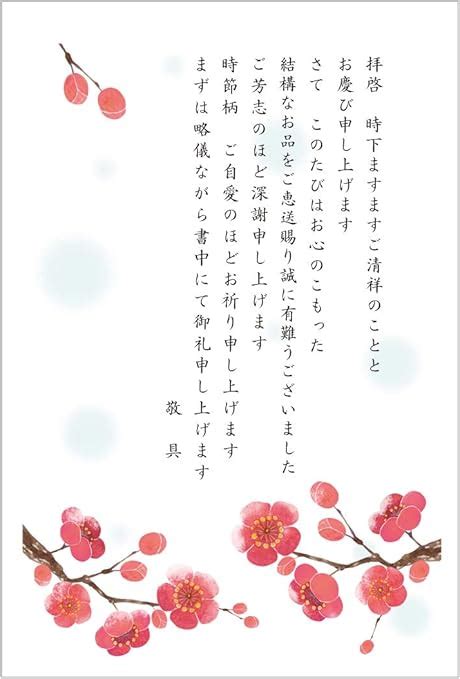 拝啓　時下ますますご清祥のことと
お慶び申し上げます
さて　このたびはお心のこもった
結構なお品をご恵送賜り誠に有難うございました
ご芳志のほど深謝申し上げます
時節柄　ご自愛のほどお祈り申し上げます
まずは略儀ながら書中にて御礼申し上げます
敬具